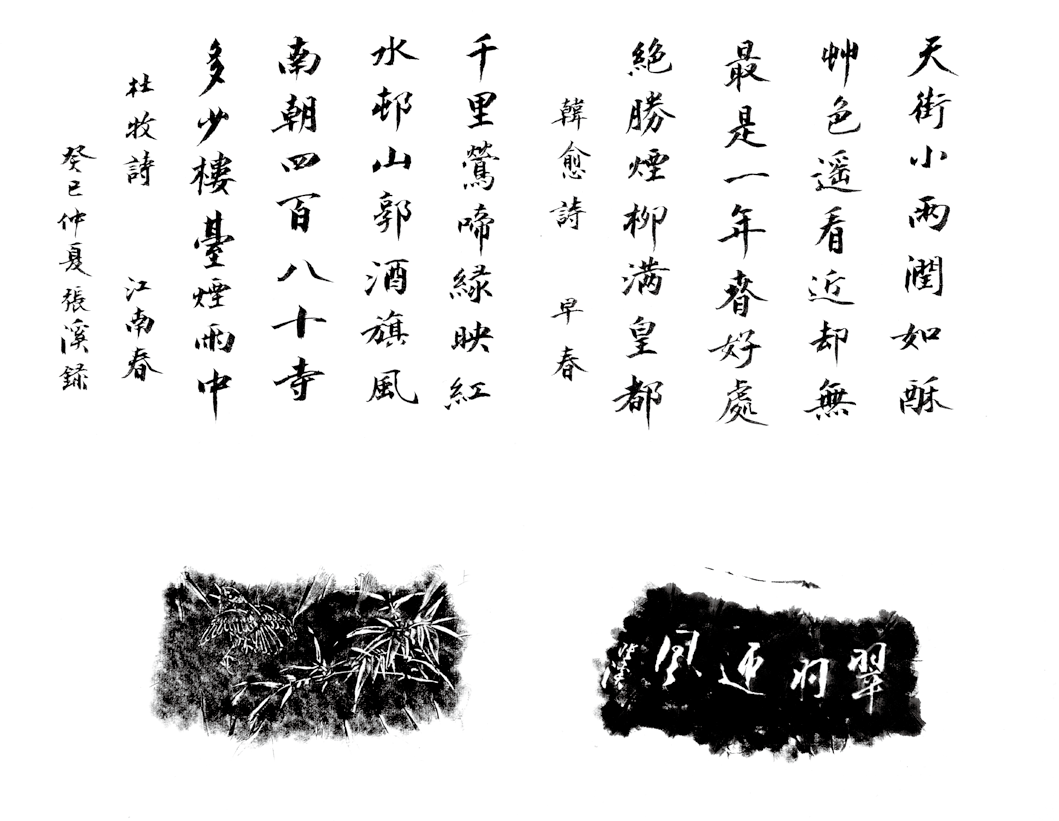 天街小雨潤如酥
艸色遥看近却無
最是一年春好處
絕勝煙柳满皇都
韓愈詩 早春
千里鶯啼緑映紅
水邨山郭酒旗風
南朝四百八十寺
多少樓臺煙雨中
杜牧詩 江南春
癸巳仲夏張溪錄
翠羽迎風
張溪